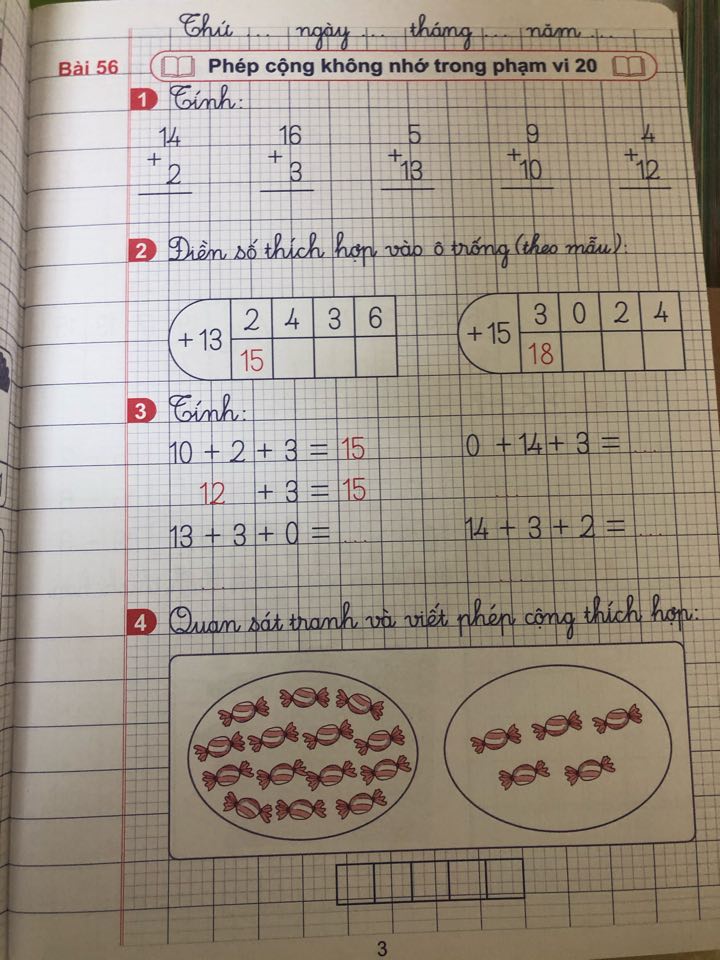 Thứ ... ngày ... tháng ... năm ...
Bài 56 Phép cộng không nhớ trong phạm vi 20
1 Tính:
14 16 5 9 4
+ + + + +
2 3 13 10 12
2 Điền số thích hợp vào ô trống (theo mẫu):
+13 2 4 3 6
15
+15 3 0 2 4
18
3 Tính:
10 + 2 + 3 = 15 0 + 14 + 3 = ...
12 + 3 = 15 ...
13 + 3 + 0 = ... 14 + 3 + 2 = ...
... ...
4 Quan sát tranh và viết phép cộng thích hợp:
3